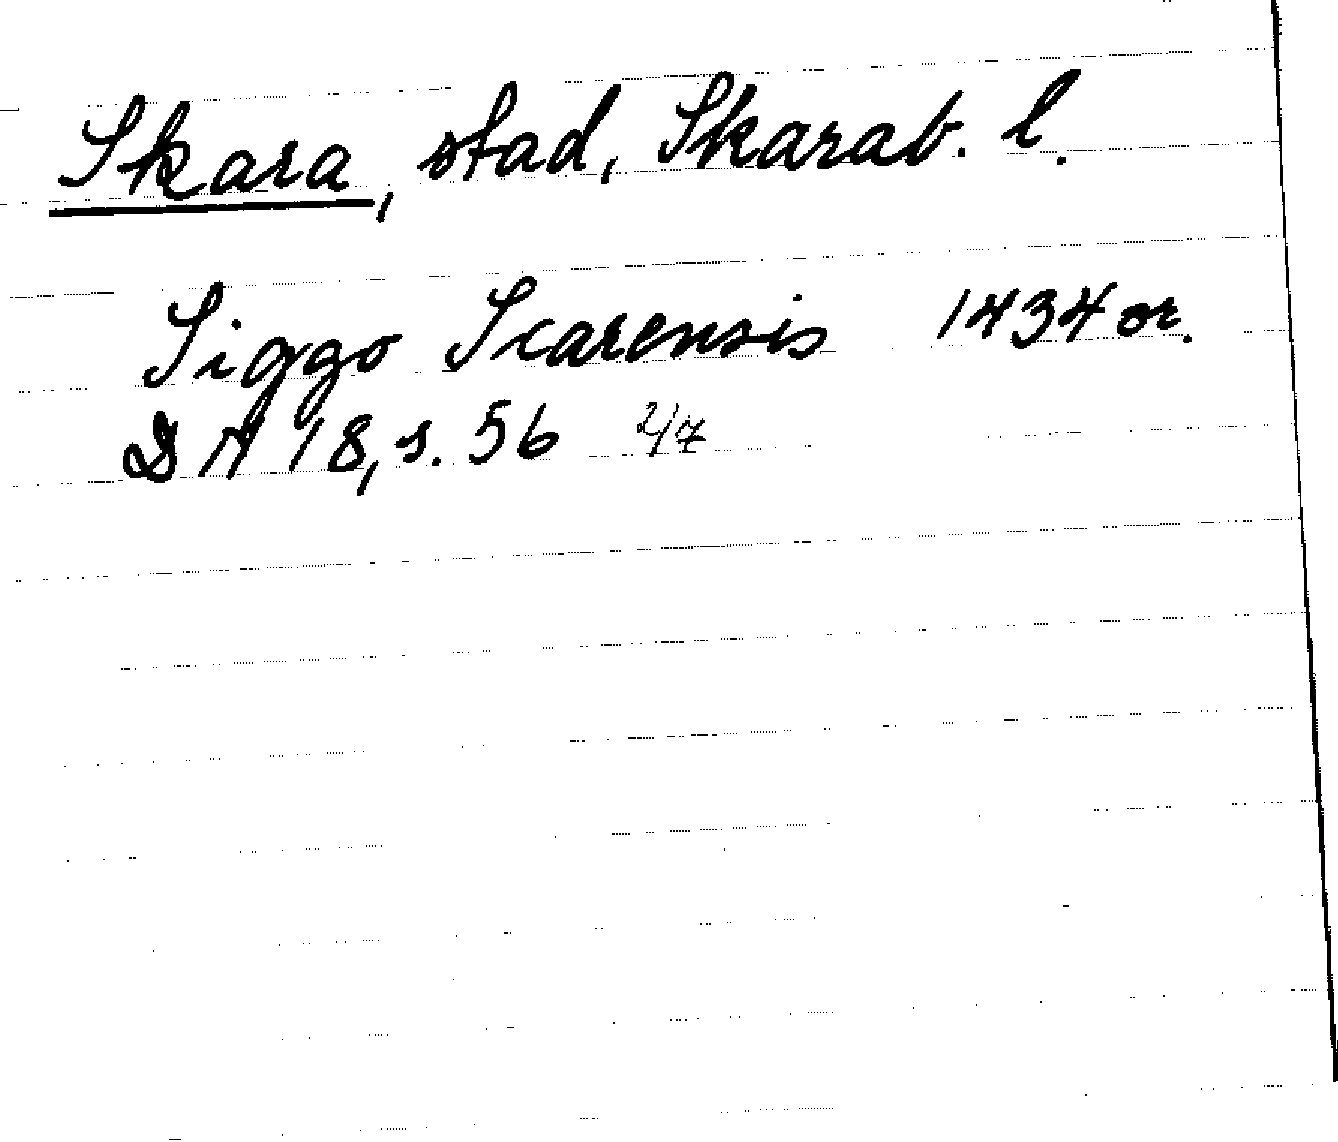 Skara, stad, Skarab. l.
Siggo Scarensis 1434 or.
DN 18, s. 56 2/7